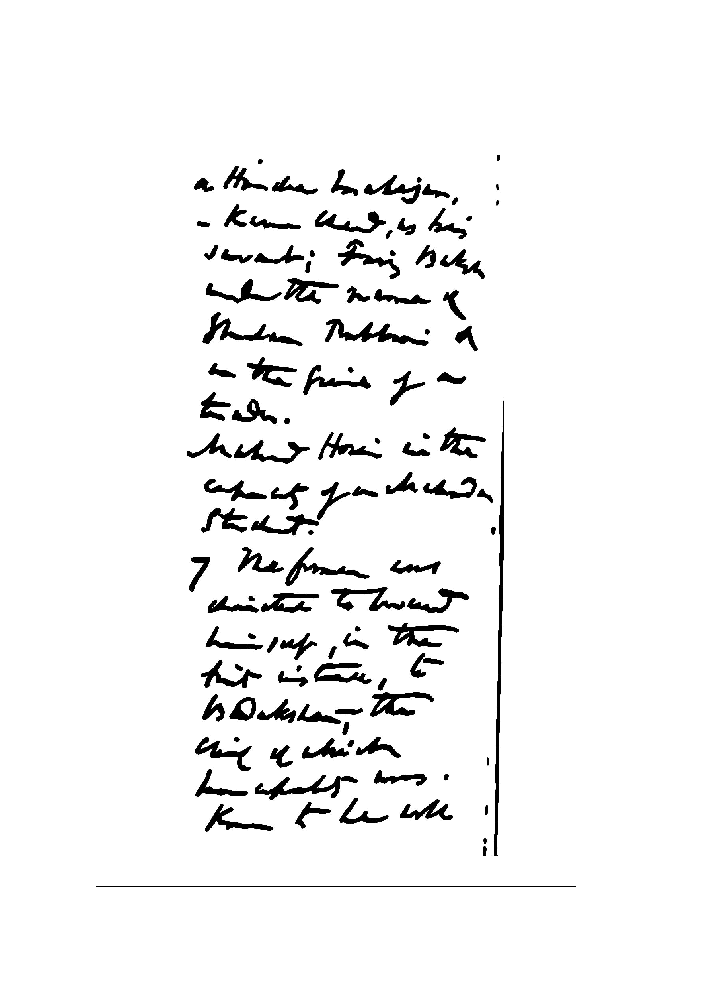 a Hindu
Karm Chand, as his
servant; Faiz Baksh
under the name of
Ghulam Rabbani &
in the guise of a
trader.
Mahmud Hosein in the
capacity of a
Student.
7 The former was
directed to
himself, in the
first instance, to
Badakshan, the
chief of which
was
known to be well